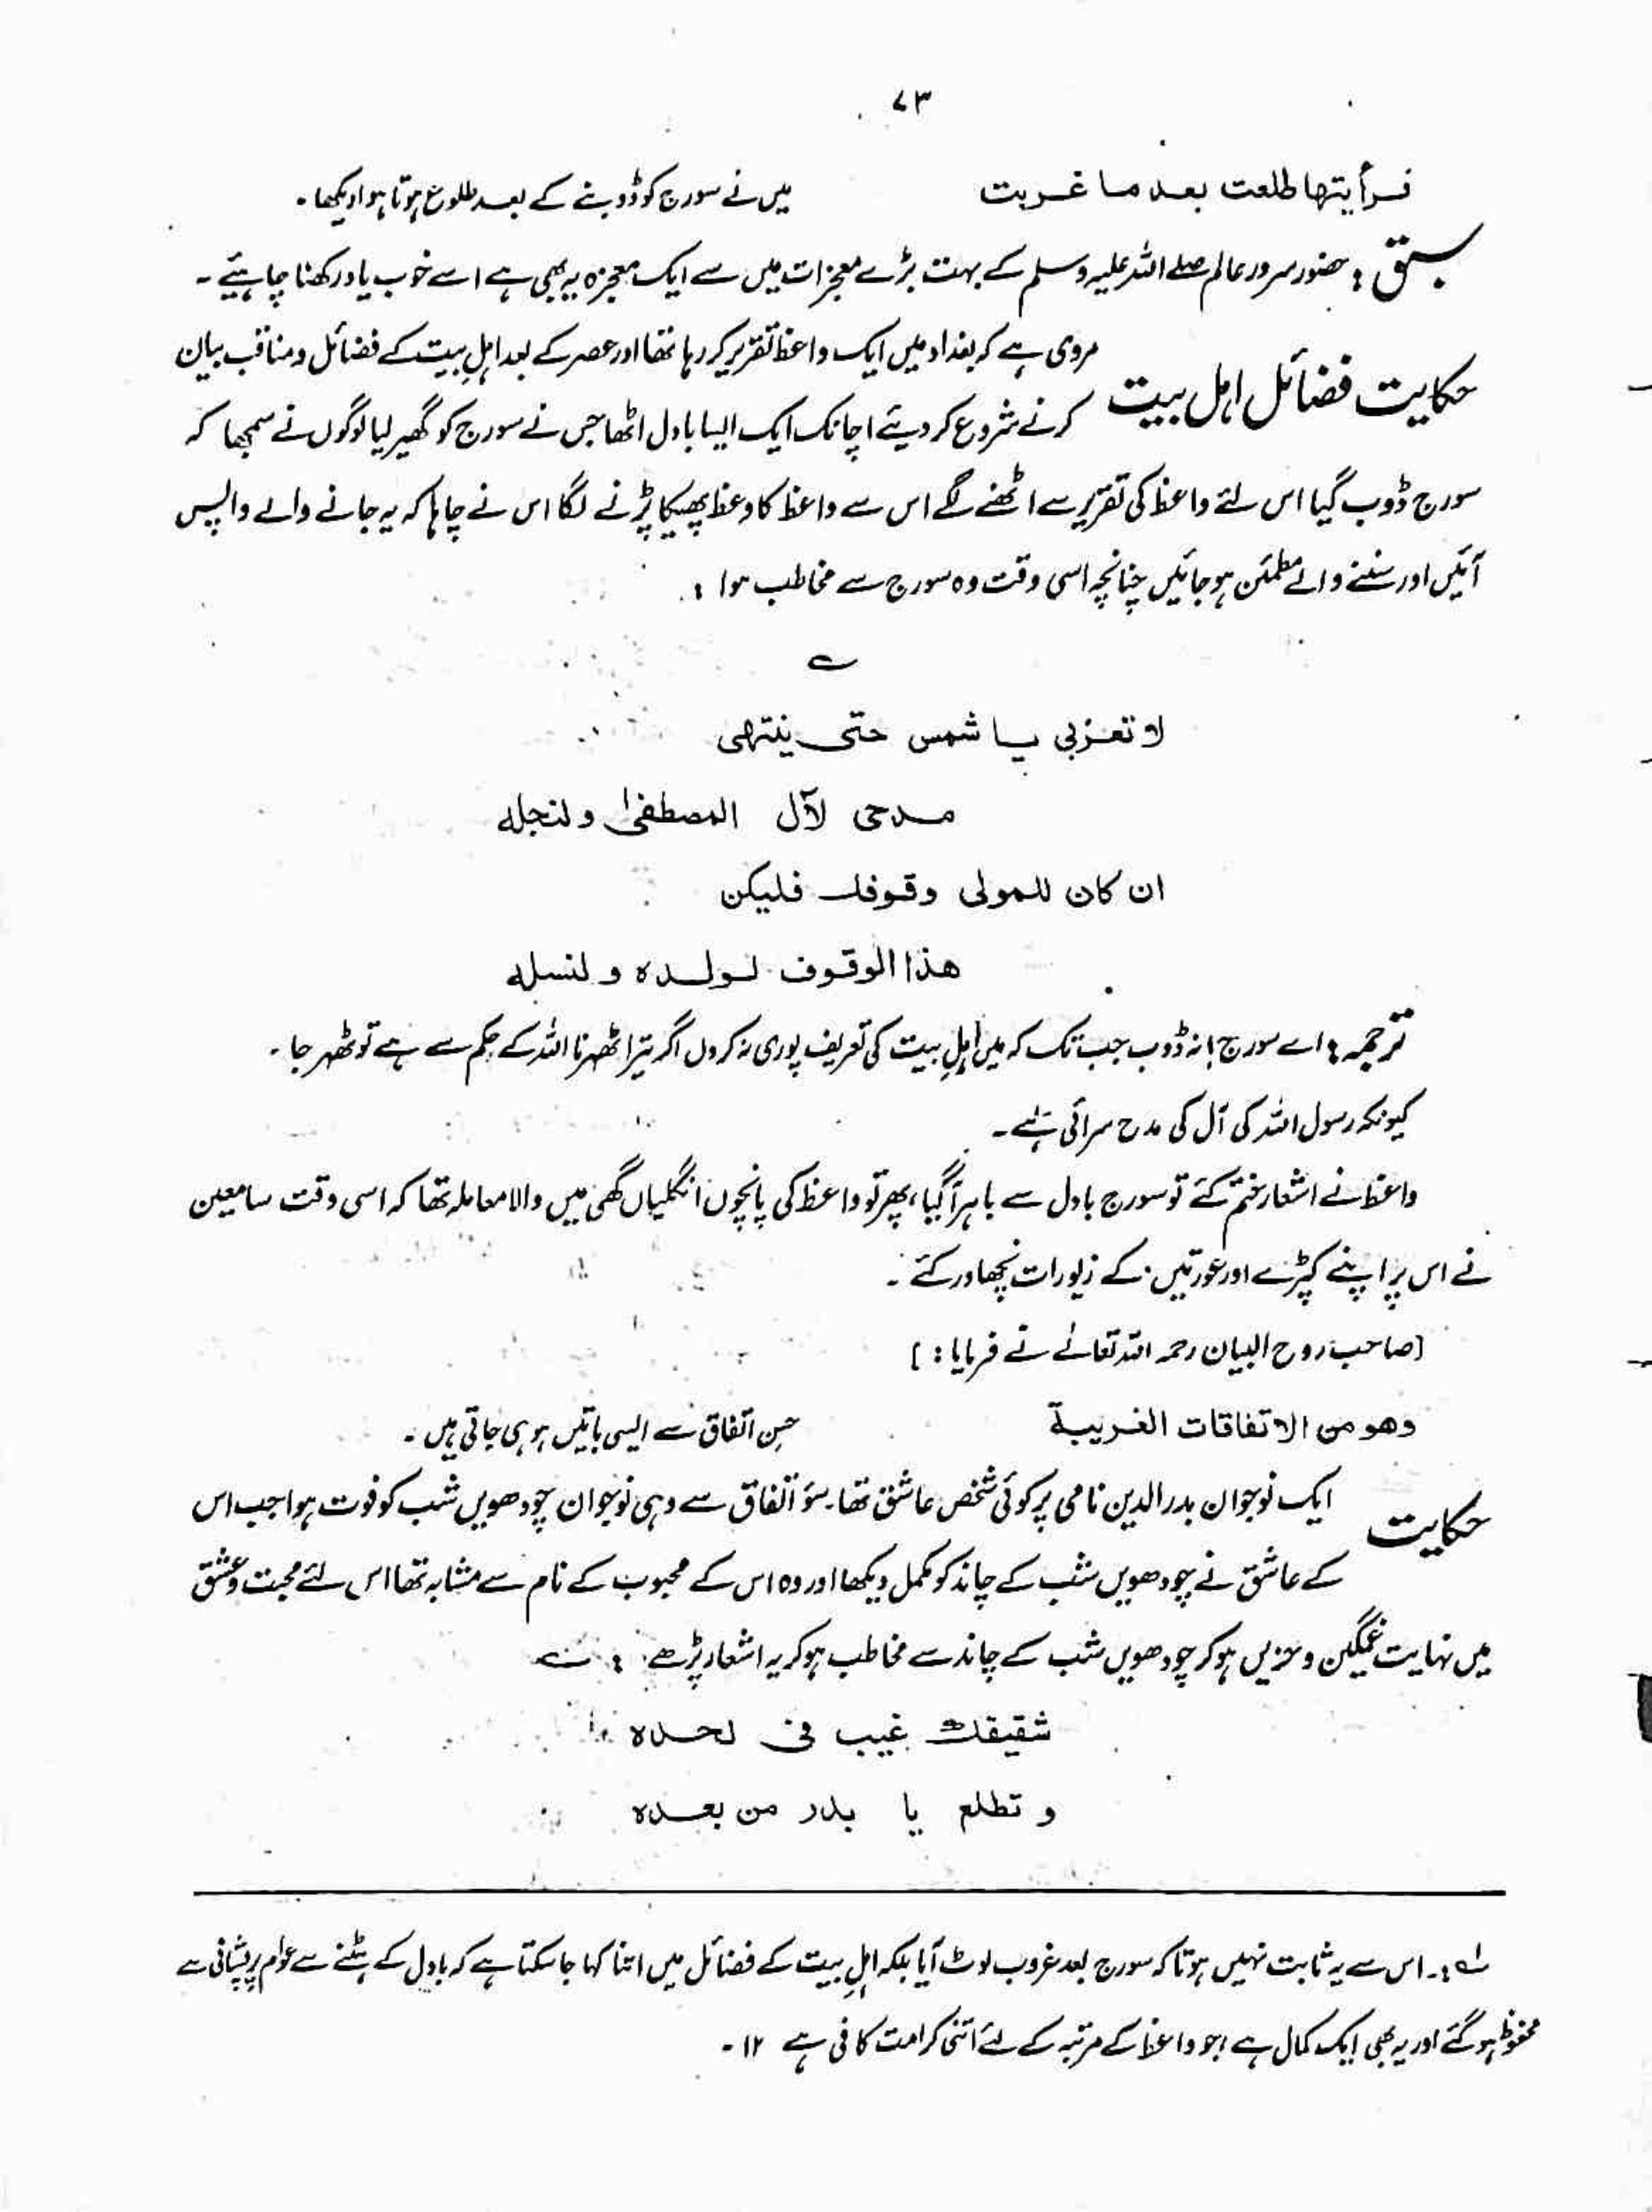 ۷۳
فرأيتها طلعت بعد ما غربت میں نے سورج کو ڈوبنے کے بعد طلوع ہوتا ہوا دیکھا۔
سبق : حضور سرور عالم صلے اللہ علیہ وسلم کے بہت بڑے معجزات میں سے ایک معجزہ یہ بھی ہے اسے خوب یاد رکھنا چاہیئے۔
حکایت فضائل اہل بیت مروی ہے کہ بغداد میں ایک واعظ تقریر کر رہا تھا اور عصر کے بعد اہلِ بیت کے فضائل و مناقب بیان
کرنے شروع کر دیئے اچانک ایک ایسا بادل اٹھا جس نے سورج کو گھیر لیا لوگوں نے سمجھا کہ
سورج ڈوب گیا اس لئے واعظ کی تقریر سے اٹھنے لگے اس سے واعظ کا وعظ پھیکا پڑنے لگا اس نے چاہا کہ یہ جانے والے واپس
آئیں اور سننے والے مطمئن ہو جائیں چنانچہ اسی وقت وہ سورج سے مخاطب ہوا :
لا تعزبی یا شمس حتی ینتهی
مدحی لآل المصطفیٰ و لنجله
ان کان للمولی وقوفك فلیکن
هذا الوقوف لولده و لنسله
ترجمہ : اے سورج! نہ ڈوب جب تک کہ میں اہلِ بیت کی تعریف پوری نہ کروں اگر تیرا ٹھہرنا اللہ کے حکم سے ہے تو ٹھہر جا۔
کیونکہ رسول اللہ کی آل کی مدح سرائی ہے۔
واعظ نے اشعار ختم کئے تو سورج بادل سے باہر آ گیا، پھر تو واعظ کی پانچوں انگلیاں گھی میں والا معاملہ تھا کہ اسی وقت سامعین
نے اس پر اپنے کپڑے اور عورتیں کے زیورات نچھاور کئے۔
[صاحب روح البیان رحمہ اللہ تعالےٰ نے فرمایا : ]
وهو من الاتفاقات الغريبة حسن اتفاق سے ایسی باتیں ہو ہی جاتی ہیں۔
حکایت ایک نوجوان بدر الدین نامی پر کوئی شخص عاشق تھا۔ سؤ اتفاق سے وہی نوجوان چودھویں شب کو فوت ہوا جب اس
کے عاشق نے چودھویں شب کے چاند کو مکمل دیکھا اور وہ اس کے محبوب کے نام سے مشابہ تھا اس لئے محبت و عشق
میں نہایت غمگین و حزیں ہو کر چودھویں شب کے چاند سے مخاطب ہو کر یہ اشعار پڑھے :
شقیقك غیب فی لحده
و تطلع یا بدر من بعده
لہ :۔ اس سے یہ ثابت نہیں ہوتا کہ سورج بعد غروب لوٹ آیا بلکہ اہلِ بیت کے فضائل میں اتنا کہا جا سکتا ہے کہ بادل کے ہٹنے سے عوام پریشانی سے
محفوظ ہو گئے اور یہ بھی ایک کمال ہے جو واعظ کے مرتبہ کے لئے اتنی کرامت کافی ہے ۱۲۔